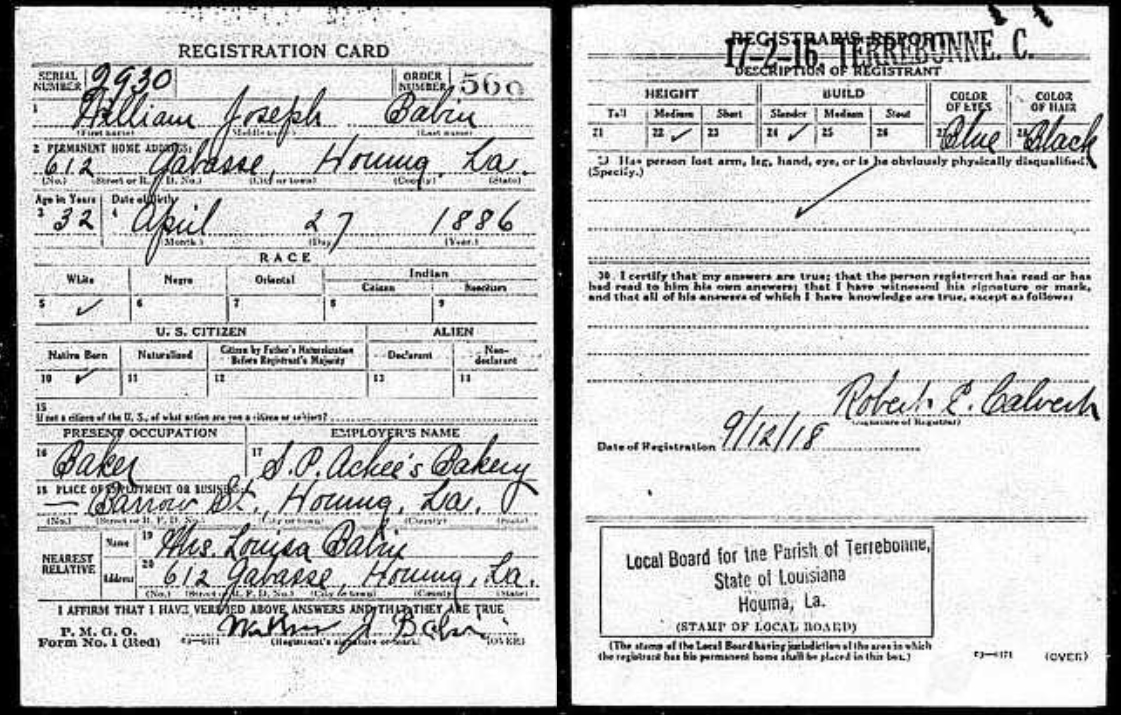 REGISTRATION CARD
SERIAL NUMBER 2930 ORDER NUMBER 560
1 William Joseph Babin
(First name) (Middle name) (Last name)
2 PERMANENT HOME ADDRESS:
612 Gabasse, Houma, La.
(No.) (Street or R. F. D. No.) (City or town) (County) (State)
Age in Years Date of Birth
3 32 4 April 27 1886
(Month.) (Day) (Year.)
RACE
White Negro Oriental Indian
Citizen Noncitizen
5 ✓ 6 7 8 9
U. S. CITIZEN ALIEN
Native Born Naturalized Citizen by Father's Naturalization Before Registrant's Majority Declarant Non-declarant
10 ✓ 11 12 13 14
15
If not a citizen of the U. S., of what nation are you a citizen or subject?
PRESENT OCCUPATION EMPLOYER'S NAME
16 Baker 17 S. P. Achee's Bakery
18 PLACE OF EMPLOYMENT OR BUSINESS:
— Barrow St., Houma, La.
(No.) (Street or R. F. D. No.) (City or town) (County) (State)
NEAREST RELATIVE Name 19 Mrs. Louisa Babin
Address 20 612 Gabasse, Houma, La.
(No.) (Street or R. F. D. No.) (City or town) (State)
I AFFIRM THAT I HAVE VERIFIED ABOVE ANSWERS AND THAT THEY ARE TRUE
P. M. G. O.
Form No. 1 (Red) 03—6171 William J Babin (OVER)
(Registrant's signature or mark)
REGISTRAR'S REPORT
17-2-16. TERREBONNE. C.
DESCRIPTION OF REGISTRANT
HEIGHT BUILD COLOR OF EYES COLOR OF HAIR
Tall Medium Short Slender Medium Stout
21 22 ✓ 23 24 ✓ 25 26 27 Blue 28 Black
29 Has person lost arm, leg, hand, eye, or is he obviously physically disqualified?
(Specify.)
30. I certify that my answers are true; that the person registered has read or has
had read to him his own answers; that I have witnessed his signature or mark,
and that all of his answers of which I have knowledge are true, except as follows:
Robert E. Calvert
(Signature of Registrar)
Date of Registration 9/12/18
Local Board for the Parish of Terrebonne,
State of Louisiana
Houma, La.
(STAMP OF LOCAL BOARD)
(The stamp of the Local Board having jurisdiction of the area in which
the registrant has his permanent home shall be placed in this box.)
03—6171 (OVER)